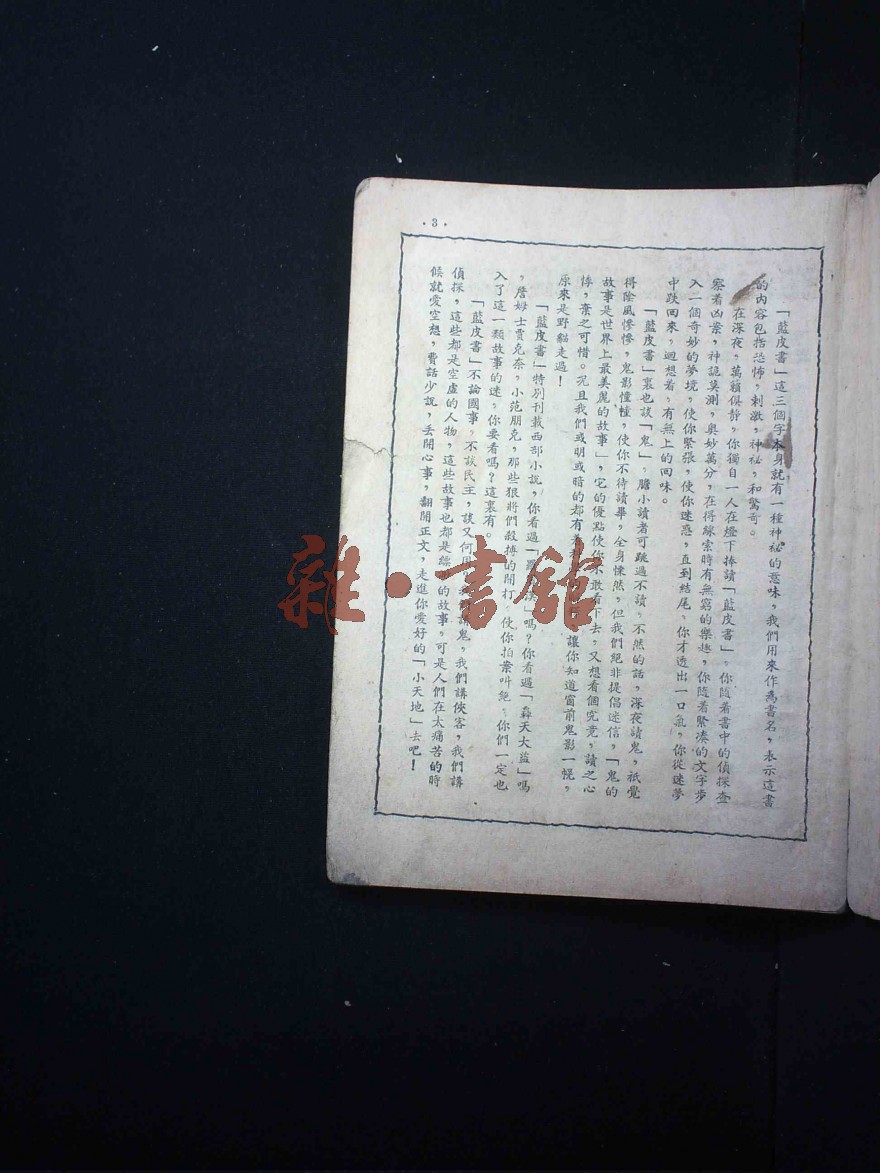 ·3·
「藍皮書」這三個字本身就有一種神祕的意味，我們用來作為書名，表示這書
的內容包括恐怖，刺激，神祕，和驚奇。
在深夜，萬籟俱靜，你獨自一人在燈下捧讀「藍皮書」，你隨着書中的偵探查
察着凶案，神詭莫測，奧妙萬分，在得線索時有無窮的樂趣，你隨着緊凑的文字步
入一個奇妙的夢境，使你緊張，使你迷惑，直到結尾，你才透出一口氣，你從迷夢
中跌回來，迴想着，有無上的回味。
「藍皮書」裏也談「鬼」，膽小讀者可跳過不讀，不然的話，深夜讀鬼，祇覺
得陰風慘慘，鬼影憧憧，使你不待讀畢，全身悚然，但我們絕非提倡迷信，「鬼的
故事是世界上最美麗的故事」，它的優點使你不敢看下去，又想看個究竟，讀之心
悸，棄之可惜。况且我們或明或暗的都有 讓你知道窗前鬼影一幌，
原來是野貓走過！
「藍皮書」特別刊載西部小說，你看過「 」嗎？你看過「森天大盜」嗎
，詹姆士賈克奈，小范朋克，那些狠將們殺搏的開打，使你拍案叫絕，你們一定也
入了這一類故事的迷，你要看嗎？這裏有。
「藍皮書」不論國事，不談民主，談又何用 我們講鬼，我們講俠客，我們講
偵探，這些都是空虛的人物，這些故事也都是 的故事，可是人們在太痛苦的時
候就愛空想，費話少說，丟開心事，翻開正文，走進你愛好的「小天地」去吧！
雜·書館